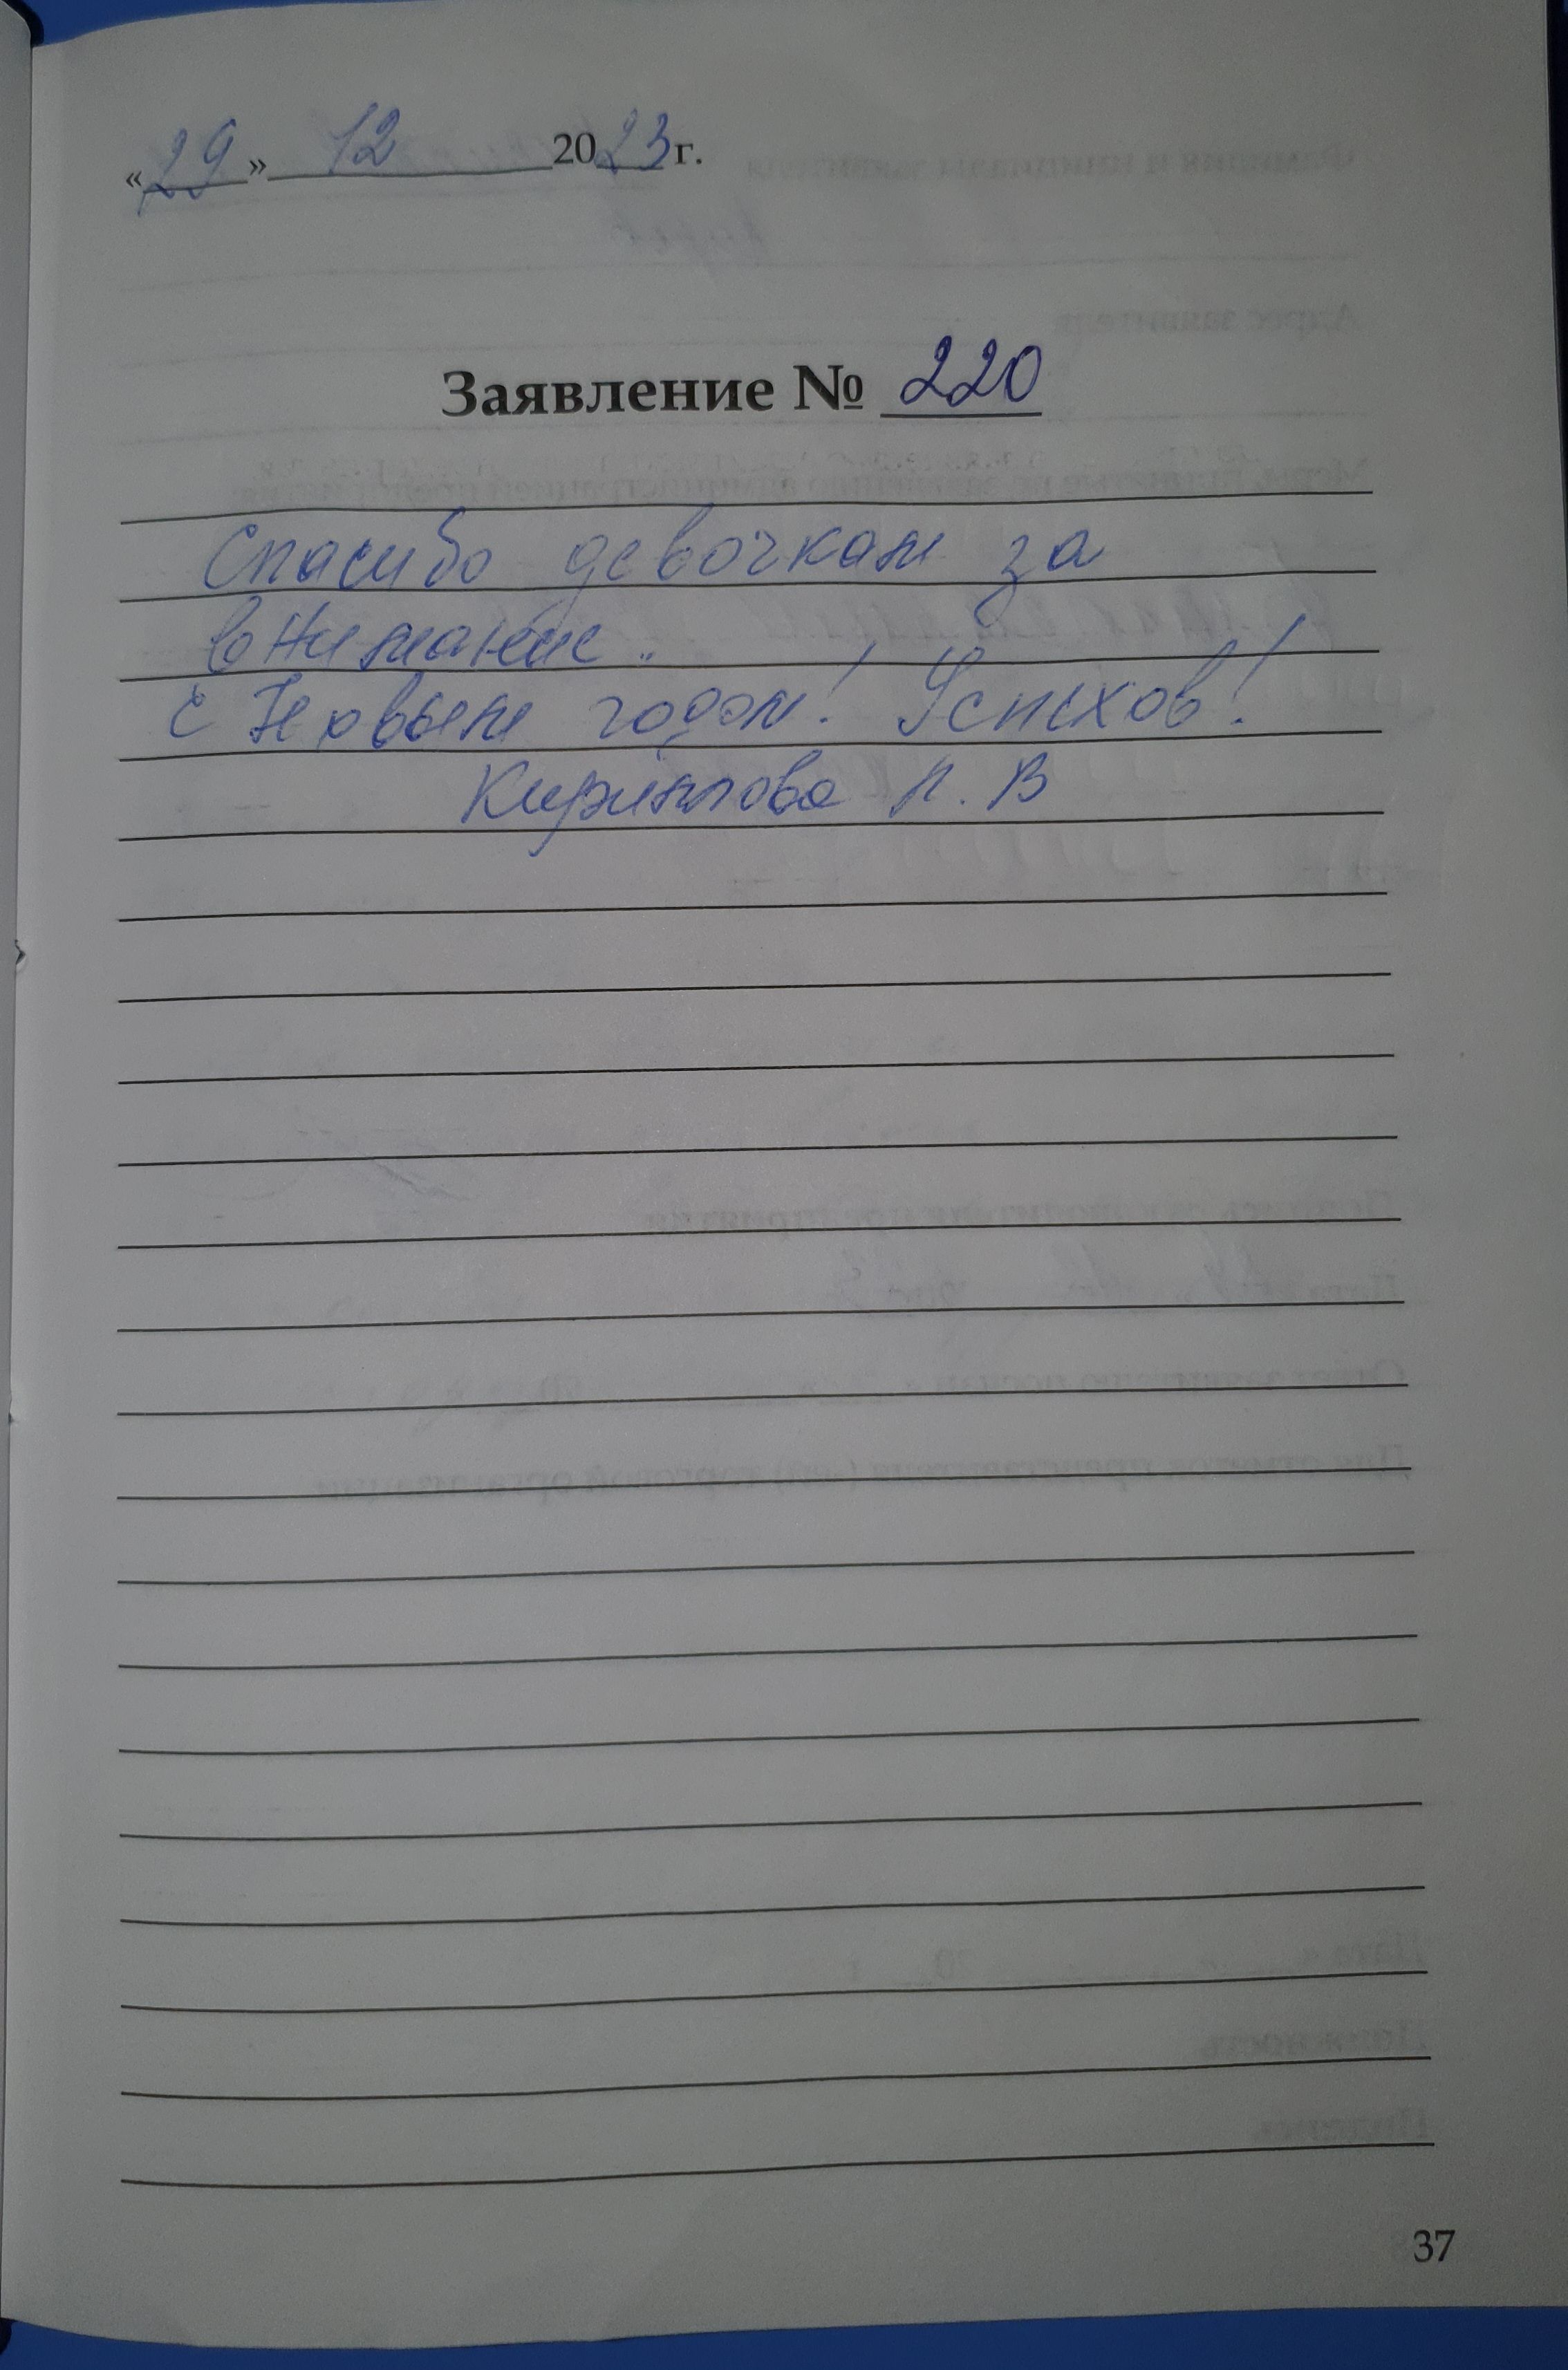 «29» 12 2023 г.
Заявление № 220
Спасибо девочкам за
внимание.
С Новым годом! Успехов!
Кириллова Л. В
37